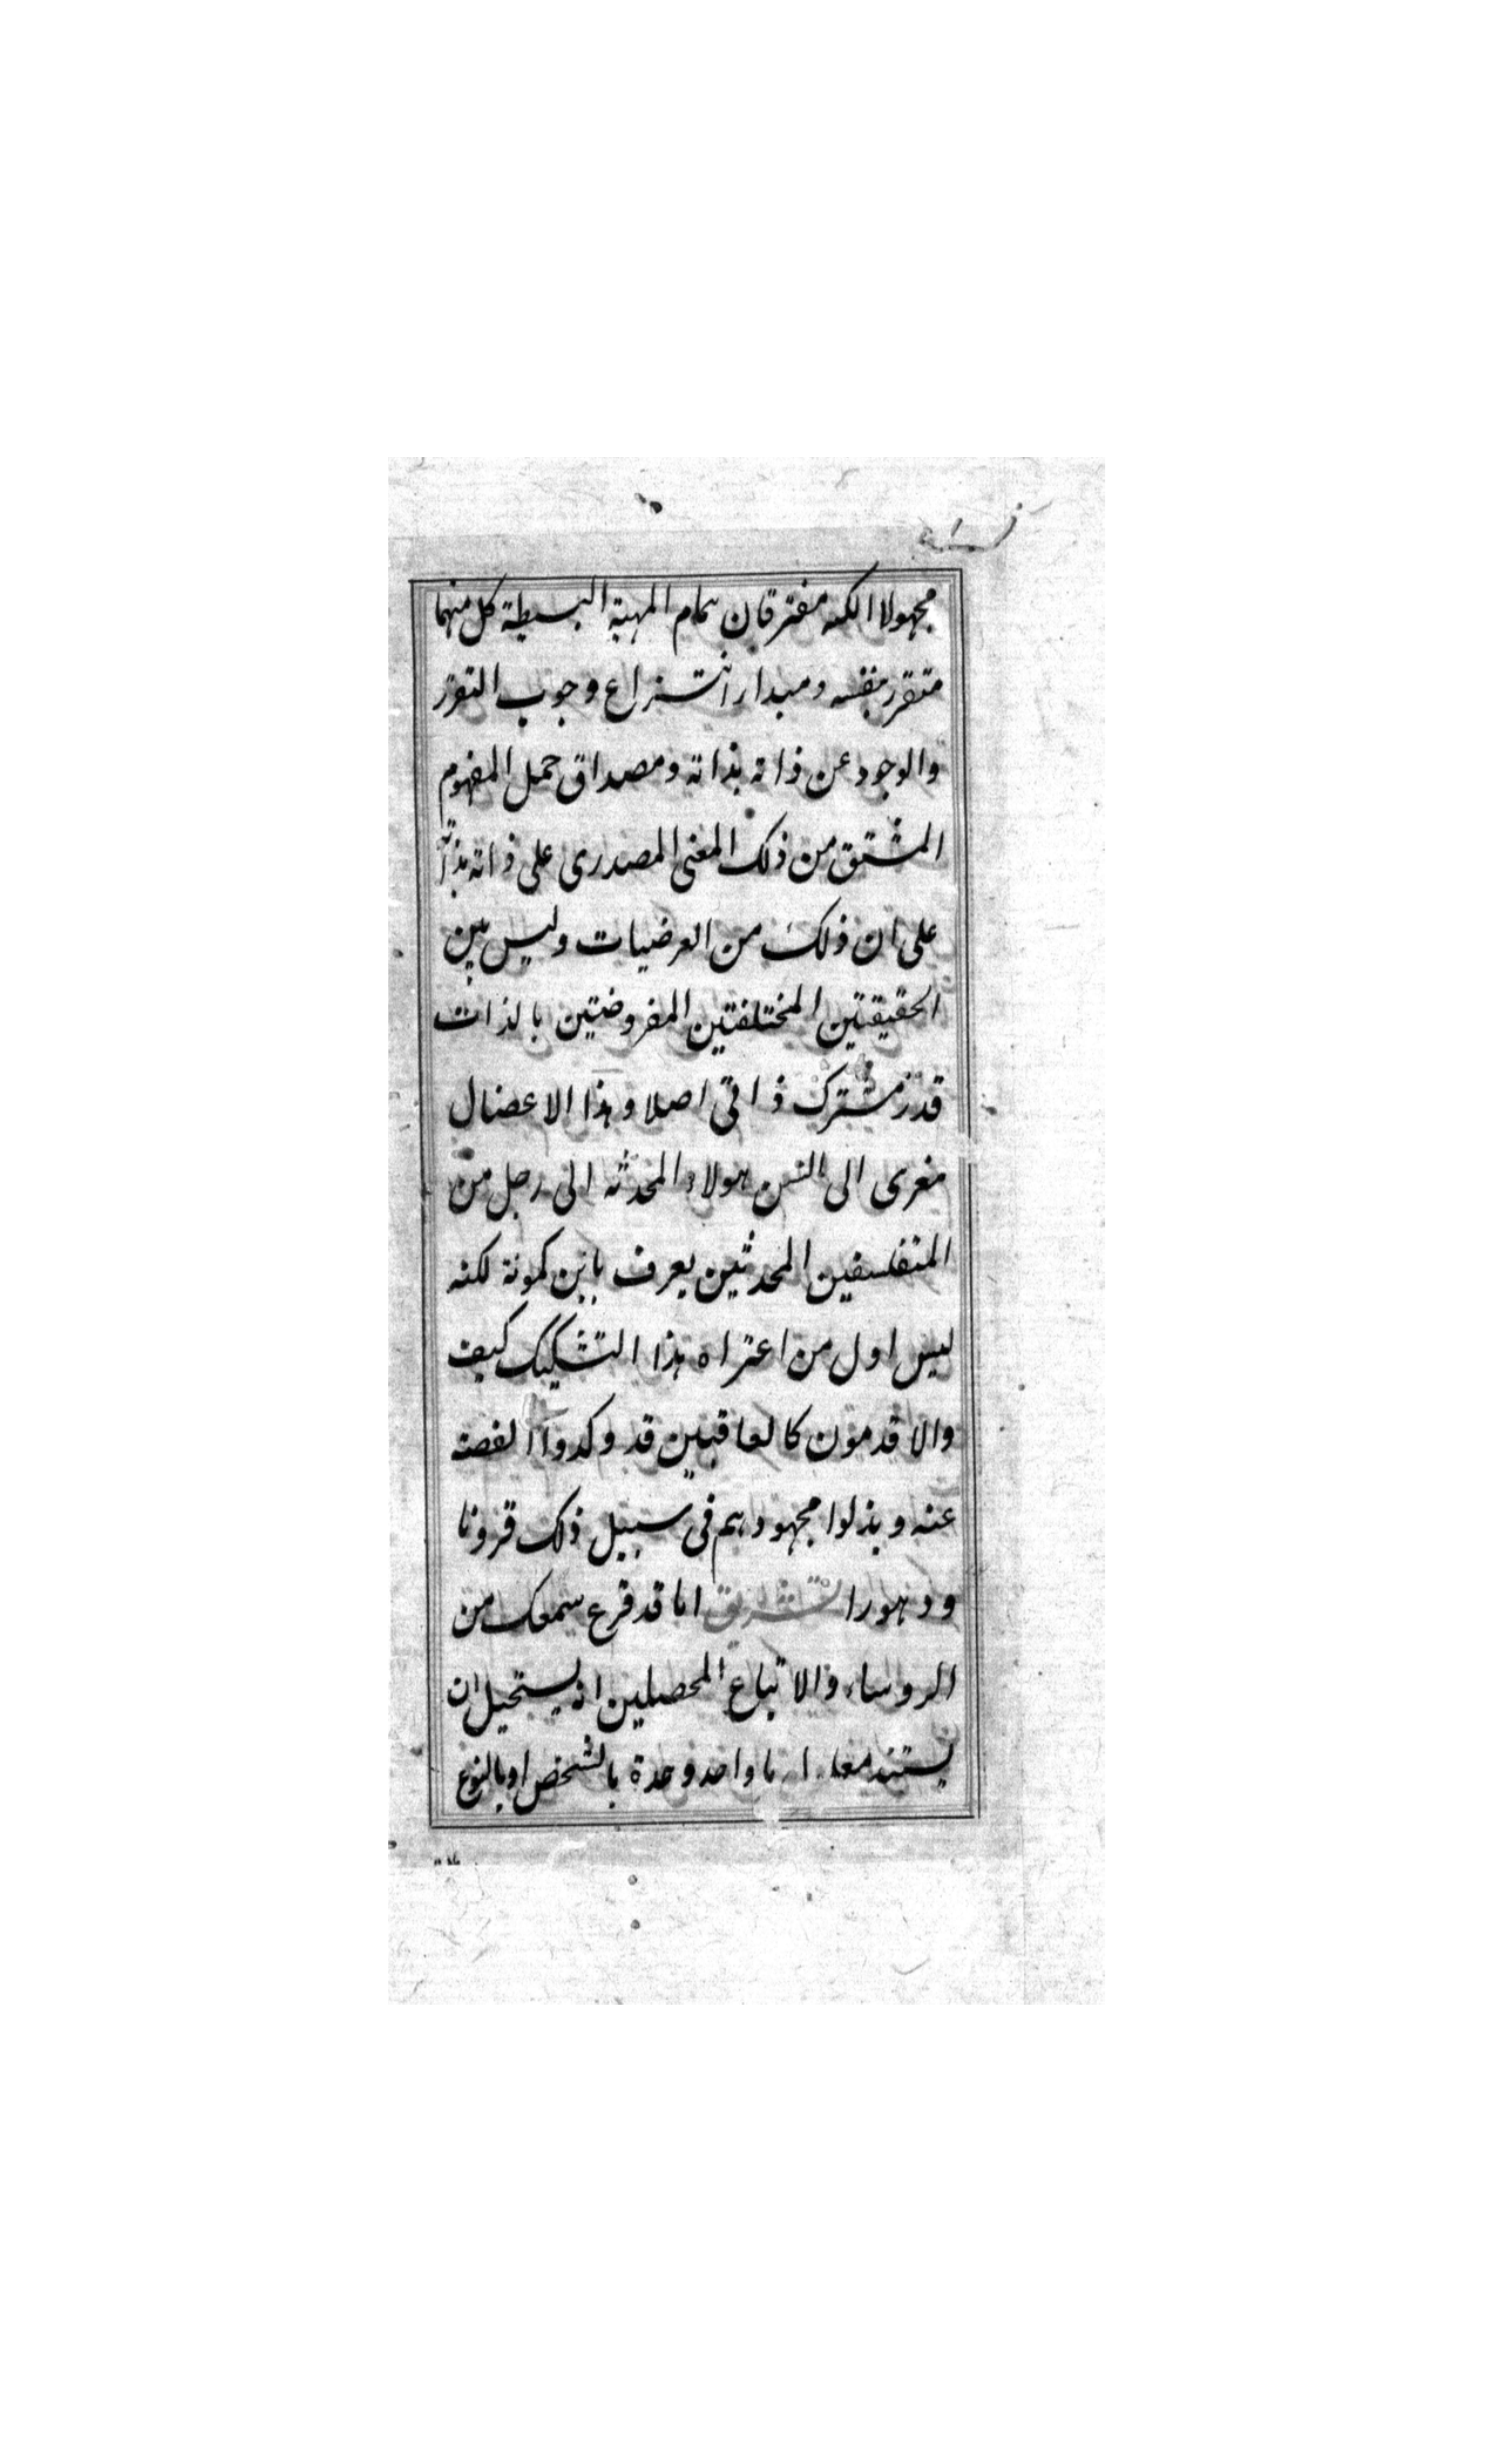 مجهولا الكنه مفترقان بتمام المهية البسيطة كل منهما
متقرر بنفسه ومبدأ انتزاع وجوب التقرر
والوجود عن ذاته بذاته ومصداق حمل المفهوم
المشتق من ذلك المعنى المصدرى على ذاته بذاته
على ان ذلك من العرضيات وليس بين
الحقيقتين المختلفتين المفروضتين بالذات
قدر مشترك ذاتى اصلا وهذا الاعضال
معزى الى السن هولاء المحدثه الى رجل من
المتفلسفين المحدثين يعرف بابن كمونة لكنه
ليس اول من اعتراه هذا التشكيك كيف
والاقدمون كالعاقبين قد وكدوا الفصية
عنه وبذلوا مجهودهم فى سبيل ذلك قرونا
ودهورا تشريق اما قد قرع سمعك من
الروساء والاتباع المحصلين انه يستحيل ان
يستند معلول ما واحد وحدة بالشخص او بالنوع